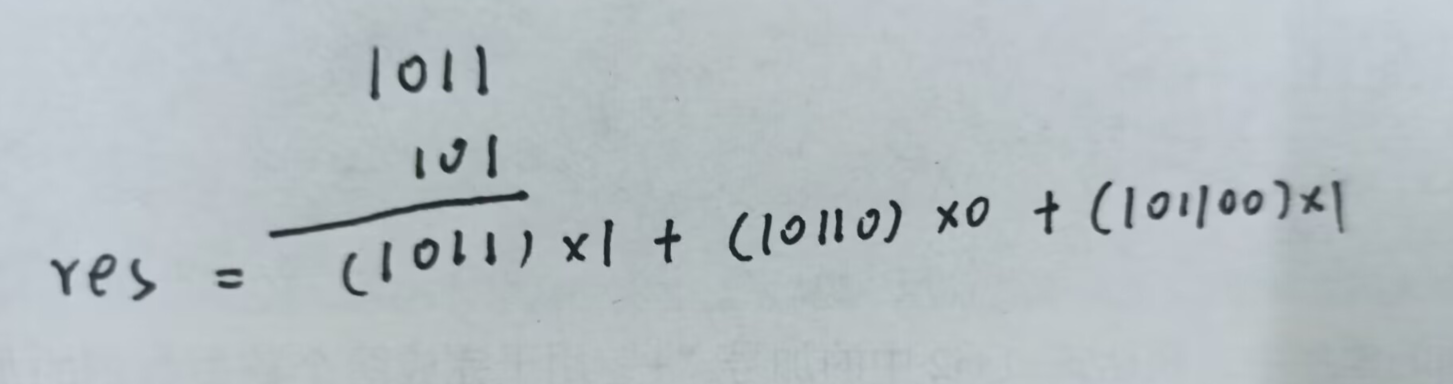 1011
101
res = (1011) ×1 + (10110) ×0 + (101100)×1